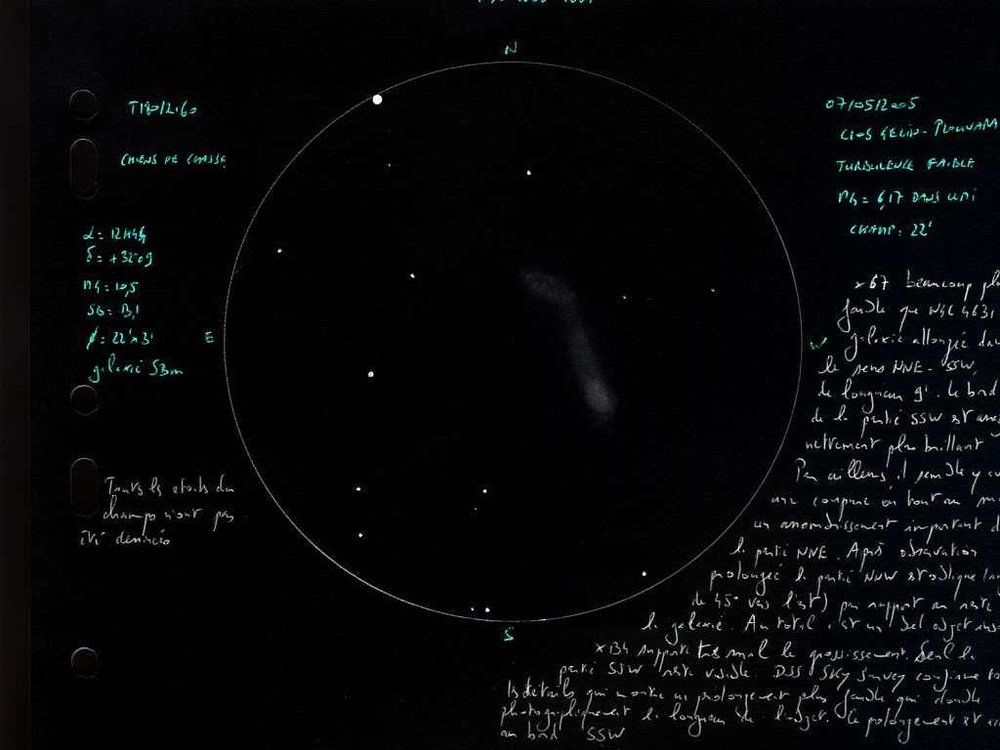 CHIENS DE CHASSE
α = 12H44
δ = +32°09
MG = 10,5
SB = 13,1
φ = 22'x3'
galaxie SBm
Toutes les étoiles du
champs n'ont pas
été dessinées
N
E
W
S
07/05/2005
CLOS GELIN - PLOUVARA
TURBULENCE FAIBLE
MG = 6,17 DANS UMI
CHAMP : 22'
x67 beaucoup
faible que NGC 4631
galaxie allongée
le sens NNE - SSW,
de longueur 9'. Le bord
de la partie SSW est
nettement plus brillant
Par ailleurs il semble y
une en bout au
un important
la partie NNE. Après observation
prolongée la partie NNW est oblique
de 45° vers l'est) par rapport au reste
la galaxie. Au total c'est un bel objet
x134 supporte très mal le grossissement. Seul la
partie SSW reste visible. DSS Sky Survey confirme
les détails qui montre un prolongement plus faible qui double
photographiquement la longueur de l'objet. Ce prolongement est
au bord SSW